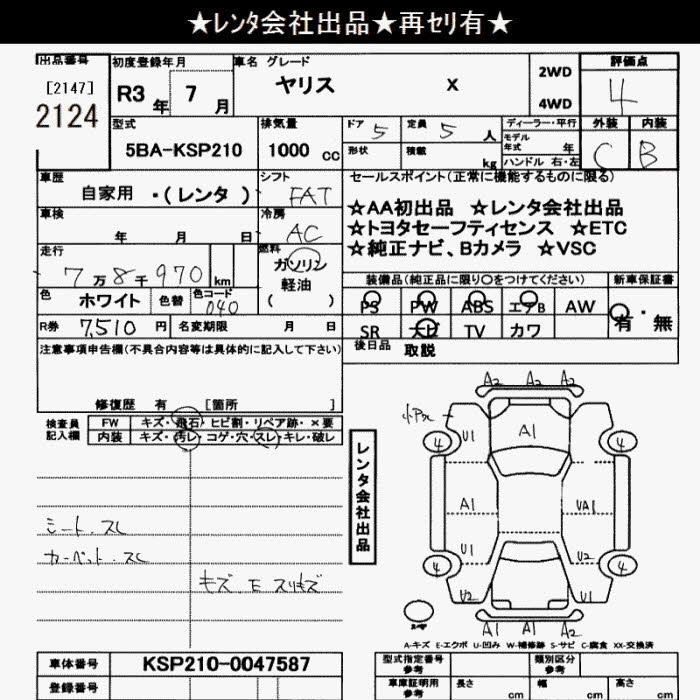 ★レンタ会社出品★再セリ有★
出品番号 初度登録年月 車名 グレード 評価点
[2147] 2124 R3年 7月 ヤリス X 2WD 4WD 4
型式 排気量 ドア 5 定員 5人 ディーラー・平行 外装 内装
5BA-KSP210 1000cc 形状 積載 kg モデル年式 年 C B
ハンドル 右・左
車歴 シフト セールスポイント(正常に機能するものに限る)
自家用 ・(レンタ) FAT
車検 冷房 ☆AA初出品 ☆レンタ会社出品
年 月 日 AC ☆トヨタセーフティセンス ☆ETC
走行 燃料 ☆純正ナビ、Bカメラ ☆VSC
7万8千970 km ガソリン 軽油 ( )
装備品(純正品に限り○をつけてください) 新車保証書
色 ホワイト 色替 色コード 040
PS PW ABS エアB AW 有・無
R券 7,510円 名変期限 月 日 SR ナビ TV カワ
注意事項申告欄(不具合内容等は具体的に記入して下さい) 後日品 取説
修復歴 有 [箇所 ]
検査員記入欄 FW キズ・飛石・ヒビ割・リペア跡・×要
内装 キズ・汚レ・コゲ・穴・スレ・キレ・破レ
レンタ会社出品
A2 A2 A2
小Px U1 A1
4 4
A1 UA1
U1 U2
4 4
U2 U1
A1 A1 A2
シート.スレ
カーペット.スレ
キズ.E スリキズ
A-キズ E-エクボ U-凹み W-補修跡 S-サビ C-腐食 XX-交換済
車体番号 KSP210-0047587 型式指定番号 参考 類別区分 参考
登録番号 車庫証明用 参考 長さ cm 幅 cm 高さ cm